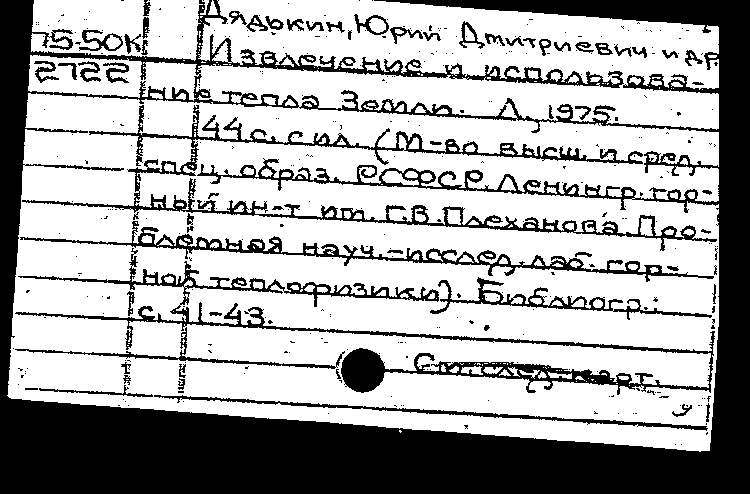 Дядькин, Юрий Дмитриевич и др.
75-50К
2722
Извлечение и использова-
ние тепла Земли. Л., 1975.
44 с. с ил. (М-во высш. и сред.
спец. образ. РСФСР. Ленингр. гор-
ный ин-т им. Г.В. Плеханова. Про-
блемная науч.-исслед. лаб. гор-
ной теплофизики). Библиогр.:
с. 41-43.
См. след. карт.